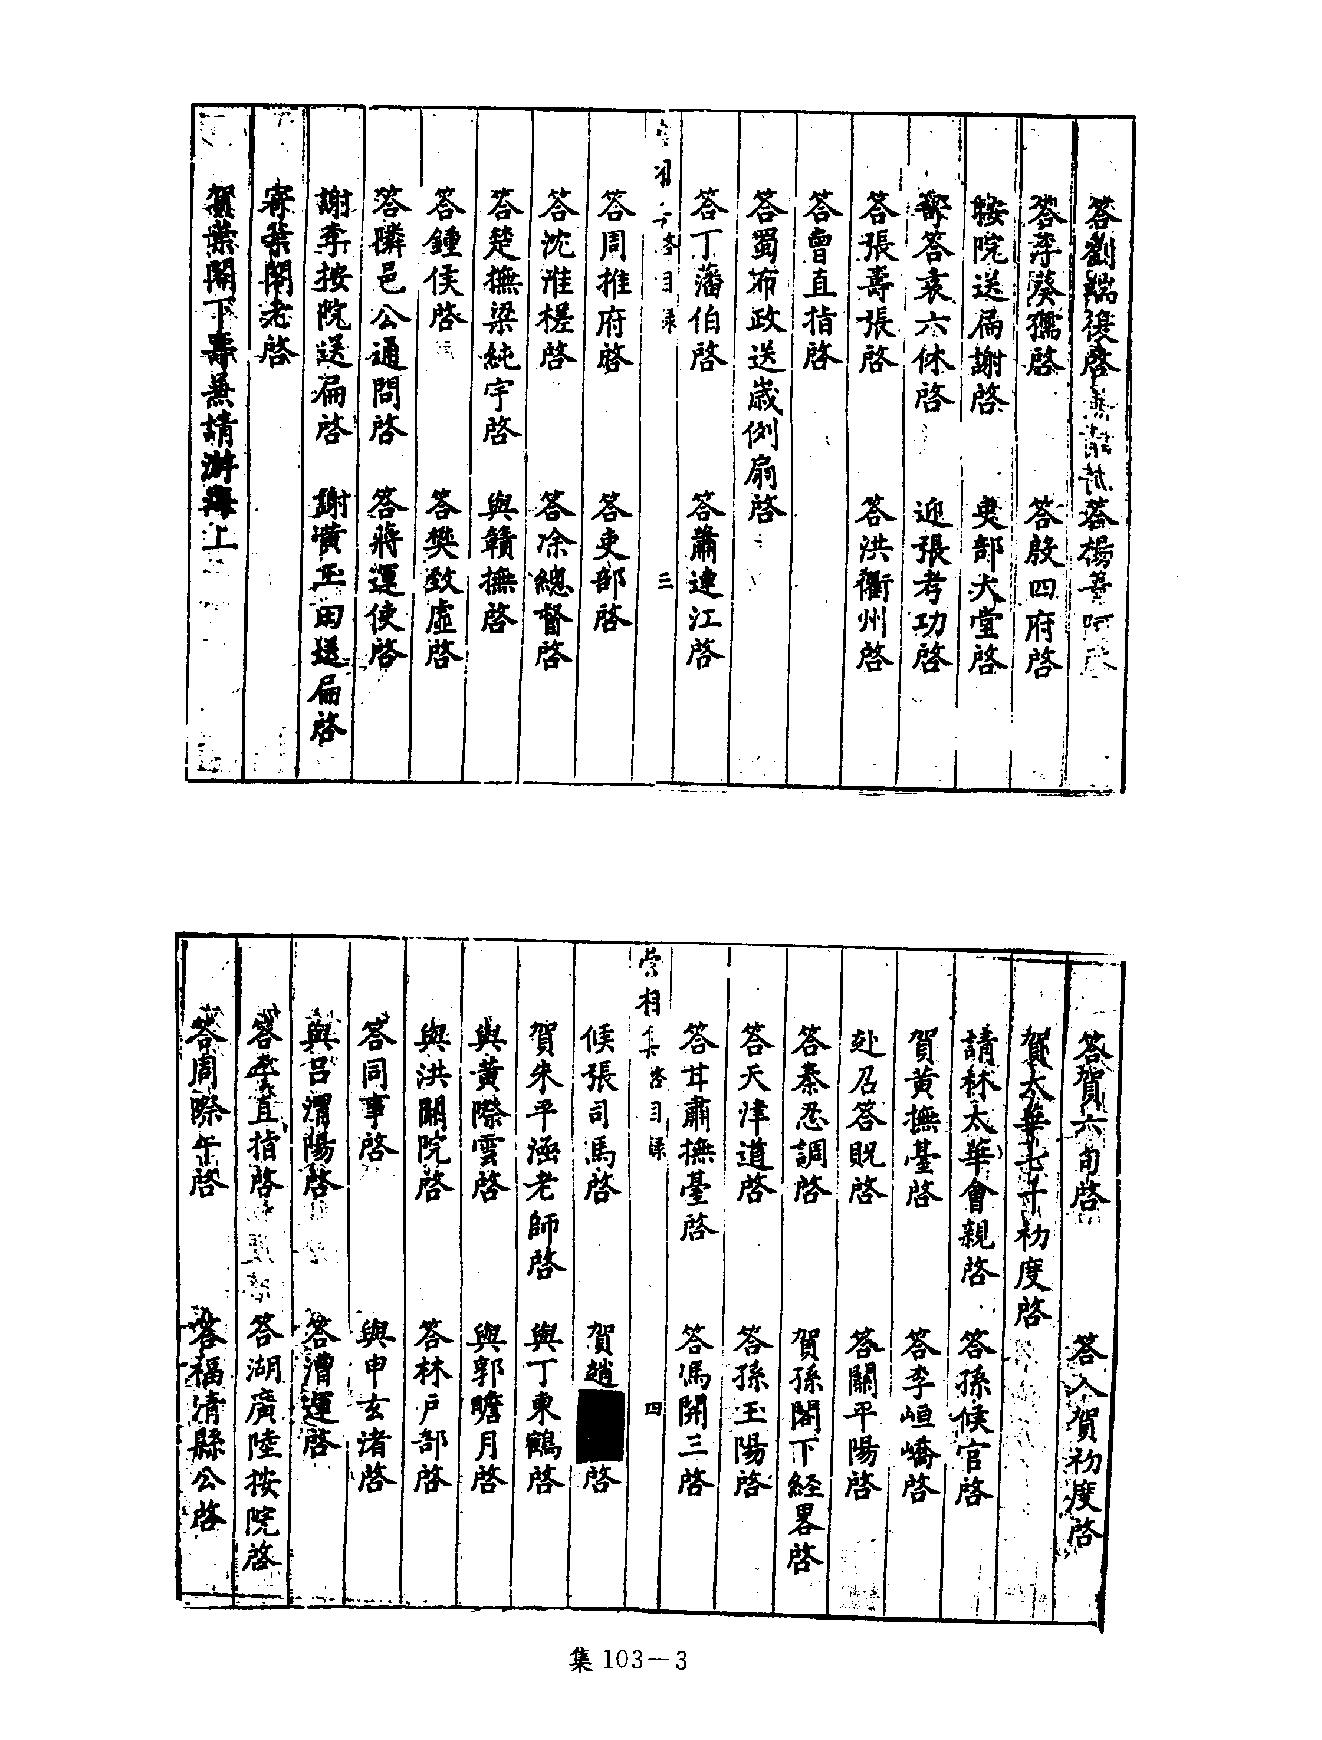 答劉端後啓 答楊
答李葵孺啓 答殷四府啓
按院送扁謝啓 吏部大堂啓
答袁六休啓 迎張考功啓
答張壽張啓 答洪衢州啓
答曾直指啓
答蜀布政送歲例扇啓
答丁藩伯啓 答蕭連江啓
啓目录 三
答周推府啓 答吏部啓
答沈淮槎啓 答涂總督啓
答楚撫梁純宇啓 與贛撫啓
答鍾侯啓 答樊致虛啓
答隣邑公通問啓 答蔣運使啓
謝李按院送扁啓 謝黃玉田送扁啓
寄葉閣老啓
賀葉閣下壽兼請游海上
答賀六旬啓 答人賀初度啓
賀太華七十初度啓
請林太華會親啓 答孫候官啓
賀黃撫臺啓 答李峘嶠啓
赴召答貺啓 答關平陽啓
答秦忍調啓 賀孫閣下經畧啓
答天津道啓 答孫玉陽啓
答甘肅撫臺啓 答馮開三啓
崇相集 啓目录 四
候張司馬啓 賀趙啓
賀朱平涵老師啓 與丁東鶴啓
與黃際雲啓 與郭瞻月啓
與洪關院啓 答林戶部啓
答同事啓 與申玄渚啓
與呂渭陽啓 答漕運啓
答李直指啓 答湖廣陸按院啓
答周際午啓 答福清縣公啓
集 103－3